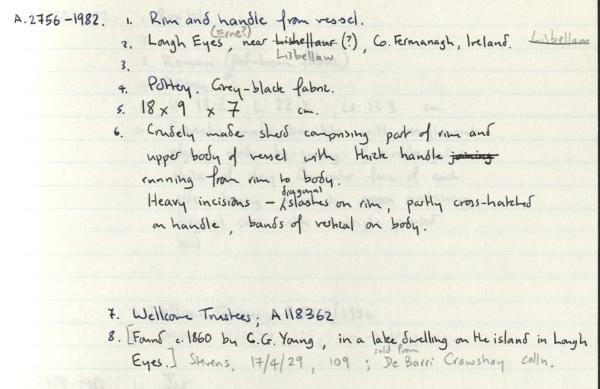 A.2756-1982. 1. Rim and handle from vessel.
(Erne?)
2. Lough Eyes, near Lishellaur (?), Co. Fermanagh, Ireland. Lisbellaw
Lisbellaw
3.
4. Pottery. Grey-black fabric.
5. 18 x 9 x 7 cm.
6. Crudely made sherd comprising part of rim and
upper body of vessel with thick handle joining
running from rim to body.
diagonal
Heavy incisions – slashes on rim, partly cross-hatched
on handle, bands of vertical on body.
7. Wellcome Trustees, A118362
8. [Found c.1860 by C.G. Young, in a lake dwelling on the island in Lough
sold from
Eyes.] Stevens, 17/4/29, 109; De Barri Crawshay colln.